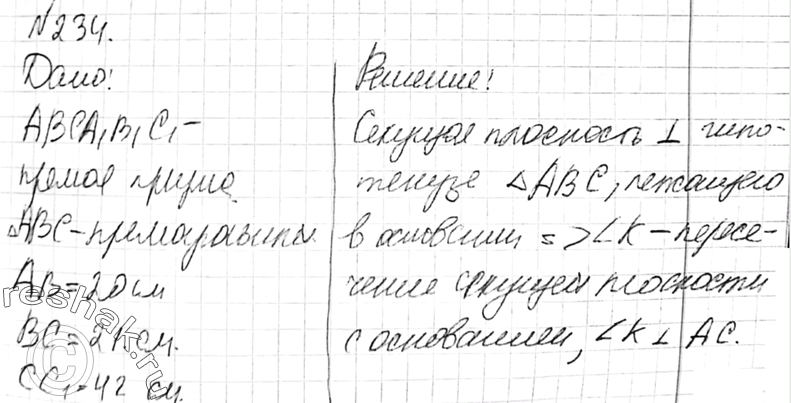 №234.
Дано:
ABCA₁B₁C₁ -
прямая призма
△ABC - прямоугольн.
AB = 20 см
BC = 21 см.
CC₁ = 42 см.
Решение:
Секущая плоскость ⊥ гипо-
тенузе △ABC, лежащего
в основании => LK - пересе-
чение секущей плоскости
с основанием, LK ⊥ AC.
reshak.ru